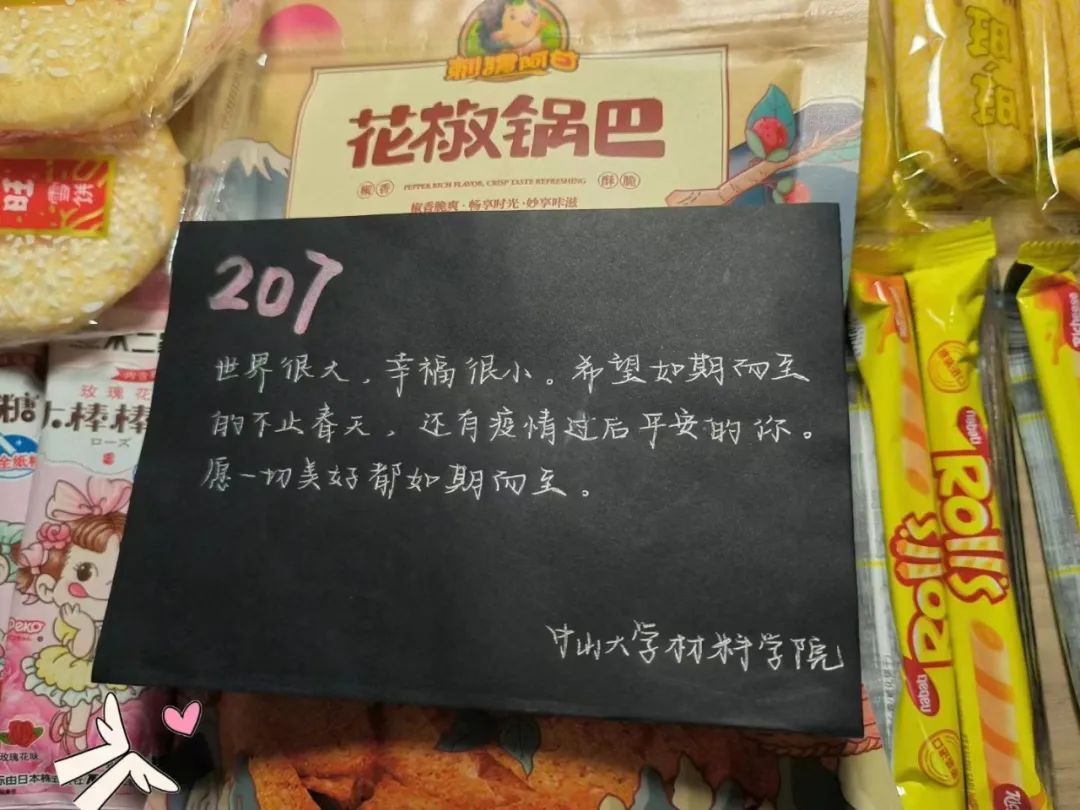 刺猬阿甘
花椒锅巴
椒香
PEPPER RICH FLAVOR, CRISP TASTE REFRESHING
酥脆
椒香脆爽·畅享时光·妙享咔滋
旺旺
旺
雪饼
207
世界很大,幸福很小。希望如期而至
的不止春天,还有疫情过后平安的你。
愿一切美好都如期而至。
中山大学材料学院
玫瑰花
棒棒
ローズ
糖
Peko
玫瑰花味
nabati
Rolls
nabati
Rolls
Richeese